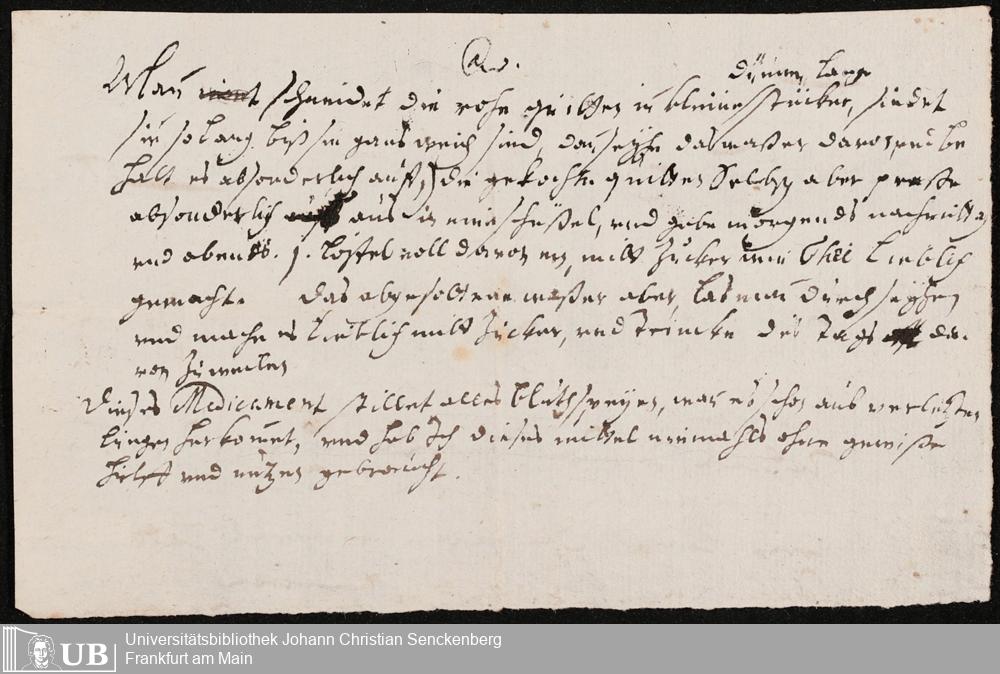 Q.
dünne, lange
Man schneidet die rohe quitten in kleine stücker, siedet
sie so lang biß sie gans weich sind, dan seyhe das waßer davon, und be
halt es absonderlich auff, die gekochte quitten selbst aber presse
absonderlich aus in eine schüßel, und gebe morgends nachmitt
und abends 1. löffel voll davon ein, mitt Zucker wie Thee lieblich
gemacht. das abgesottene waßer aber las man durch seyhen
und mache es lieblich mitt Zucker, und trincke des tags da
von zuweilen
Dieses Medicament stillet alles bluthspeyen, wan es schon aus verletzten
lungen herkomet, und hab Ich dieses mittel niemahls ohne gewisse
hielff und nutzen gebraucht.
UB
Universitätsbibliothek Johann Christian Senckenberg
Frankfurt am Main